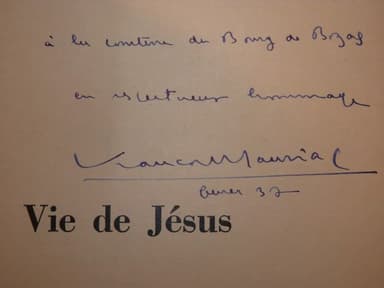 à la comtesse du Bourg de Bozas
en respectueux hommage
François Mauriac
février 37
Vie de Jésus